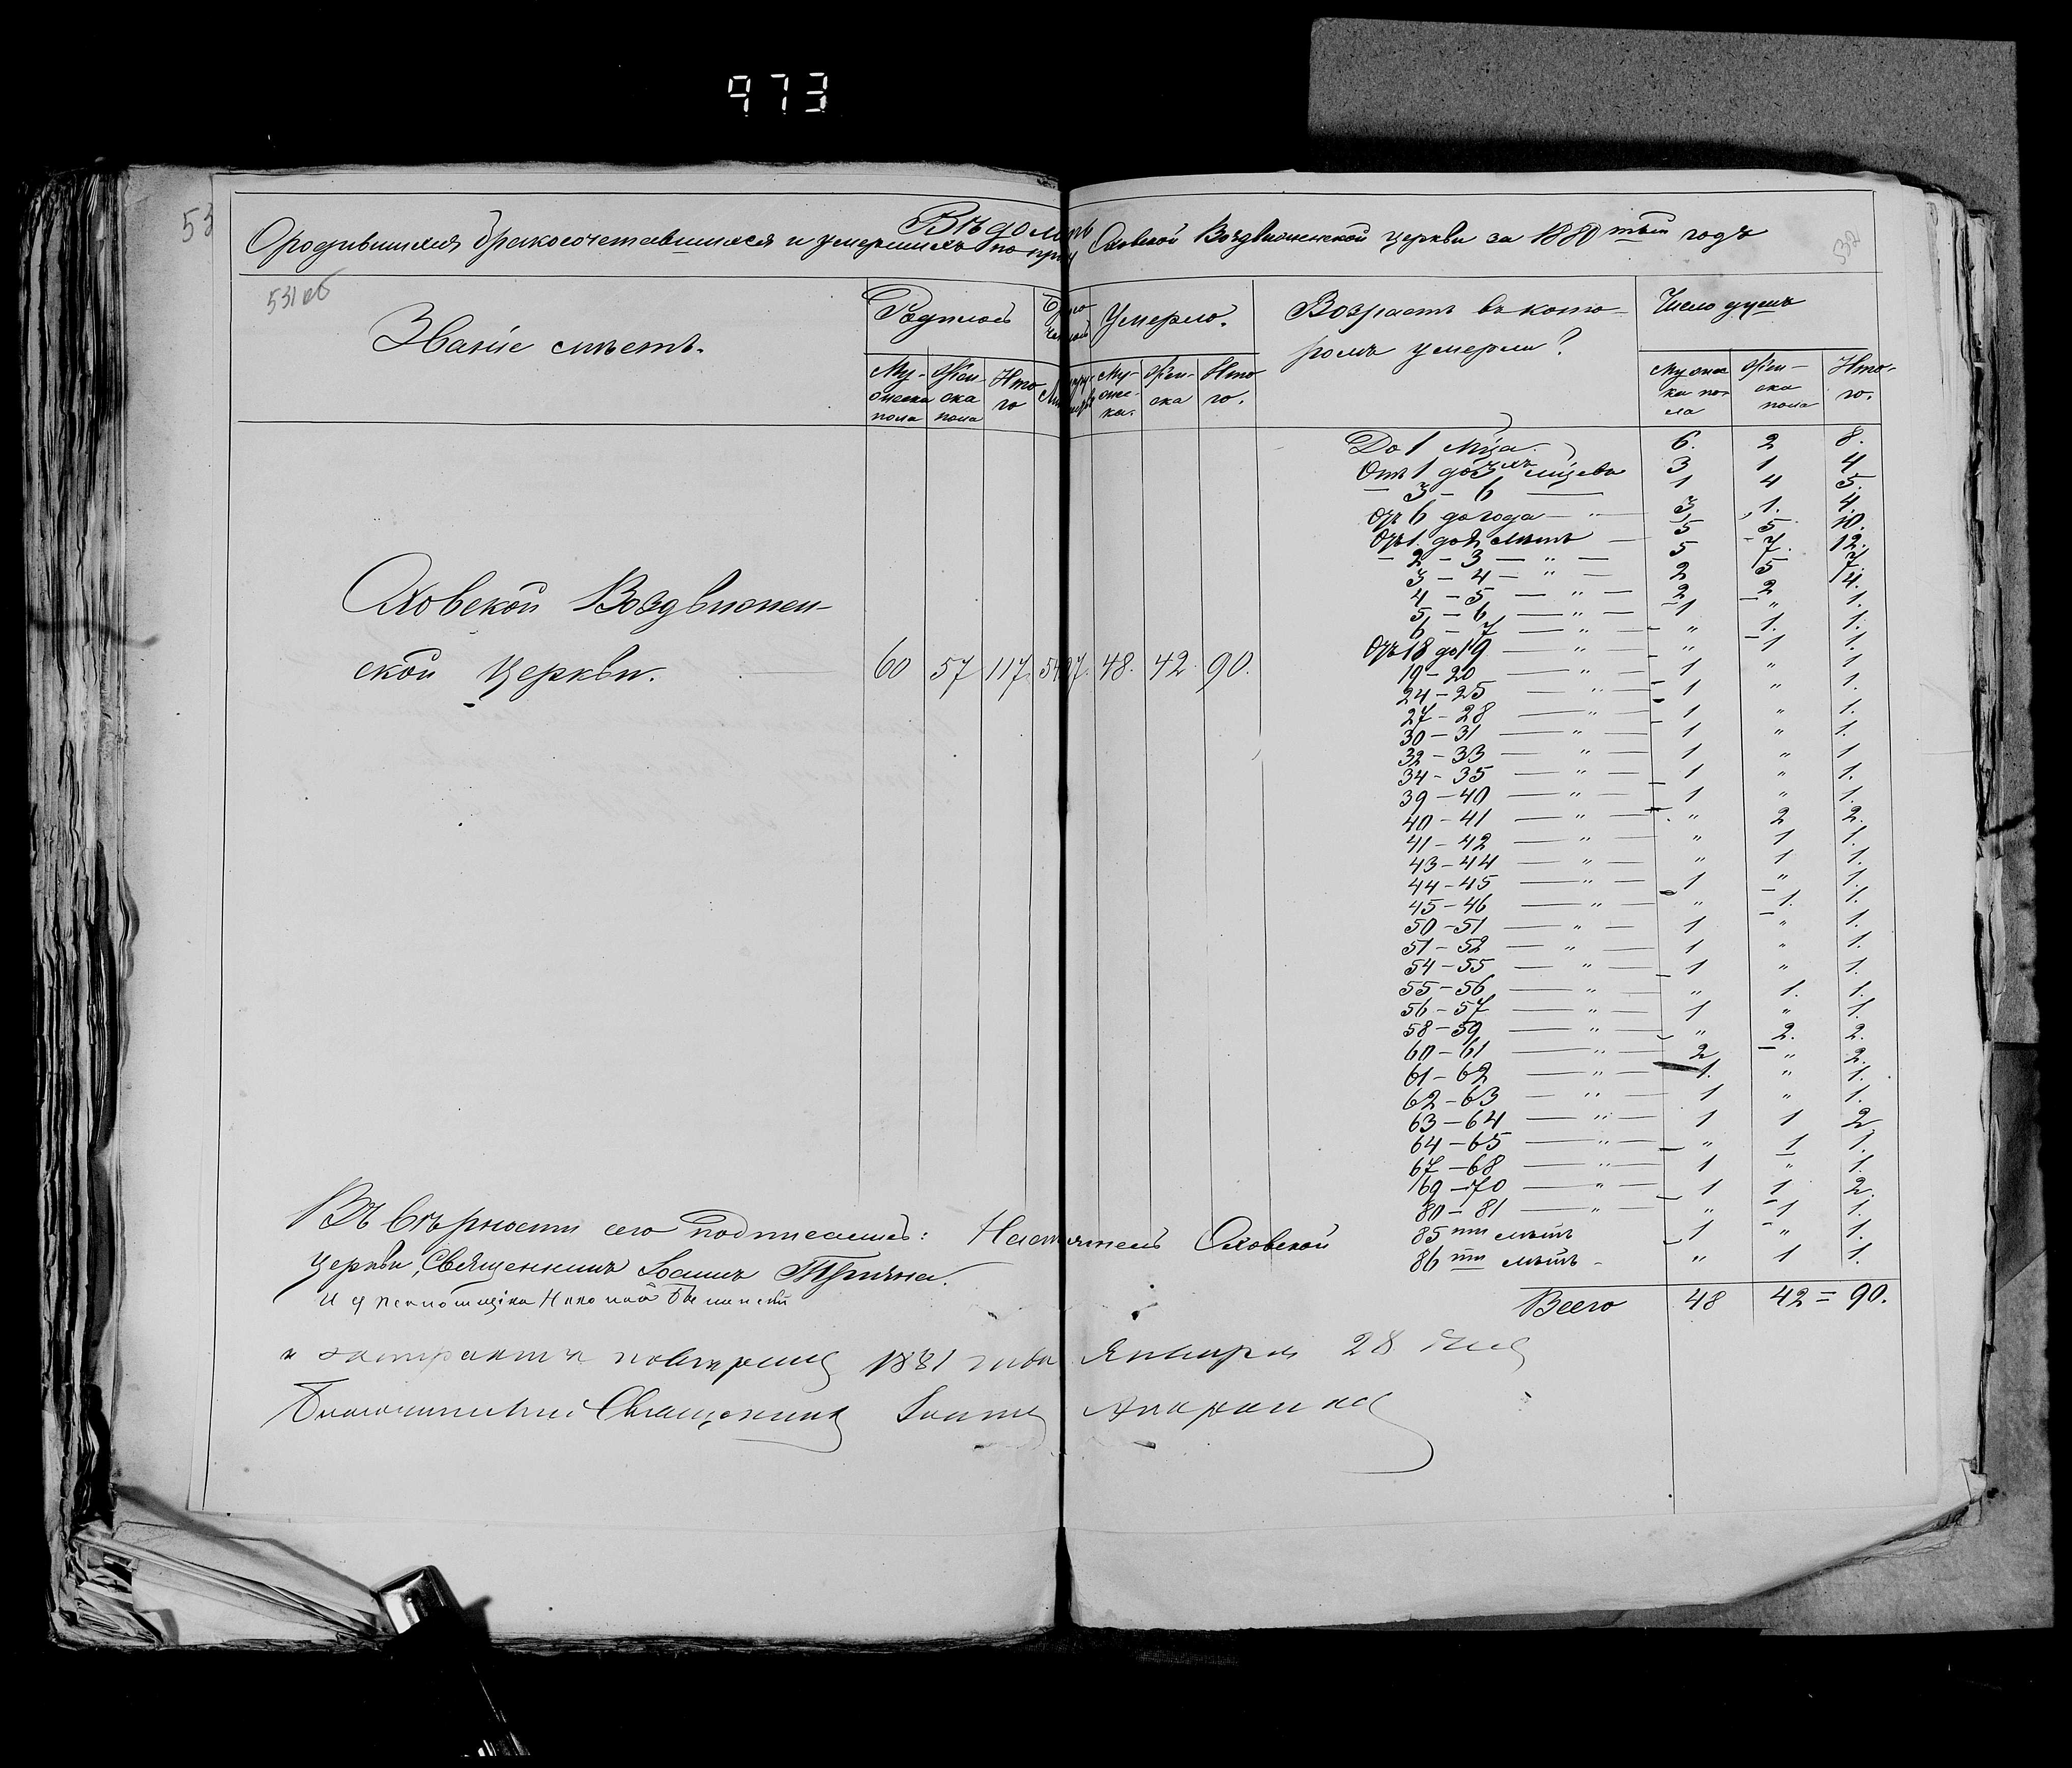 973
53
Вѣдомость
О родившихся бракосочетавшихся и умершихъ по при Оховской Воздвиженской церкви за 1880тый годъ
532
531 об
Званіе смѣтъ.
Родилось
Умерло.
Возрастъ въ кото-
ромъ умерли?
Число душъ
Му-
жеска
пола
Жен-
ска
пола
Ито
го
Му-
жес-
ка.
Жен-
ска
Ито
го.
Мужес
ка по-
ла
Жен-
ска
пола
Ито-
го.
До 1 мца. 6. 2 8.
Отъ 1 до 3хъ мцевъ 3 1 4
— 3 — 6 — 1 4 5.
Отъ 6 до года — " — 3 1. 4.
Отъ 1. до 2 лѣтъ — 5 5. 10.
— 2 — 3 — " — 5 7. 12.
3 — 4 — " — 2 5 7.
4 — 5 — " — 2 2 4.
5 — 6 — " — 1 " 1.
6 — 7 — " — " 1. 1.
Отъ 18 до 19 — " — " 1 1.
19 — 20 — " — 1 " 1
24 — 25 — " — 1 " 1.
27 — 28 — " — 1 " 1.
30 — 31 — " — 1 " 1.
32 — 33 — " — 1 " 1
34 — 35 — " — 1 " 1.
39 — 40 — " — 1 " 1.
40 — 41 — " — " 2 2.
41 — 42 — " — " 1 1.
43 — 44 — " — " 1 1.
44 — 45 — " — 1 " 1.
45 — 46 — " — " 1. 1.
50 — 51 — " — 1 " 1.
51 — 52 — " — 1 " 1.
54 — 55 — " — 1 " 1.
55 — 56 — " — " 1. 1.
56 — 57 — " — 1 " 1.
58 — 59 — " — " 2. 2.
60 — 61 — " — 2 " 2.
61 — 62 — " — 1. " 1.
62 — 63 — " — 1 " 1.
63 — 64 — " — 1 1 2
64 — 65 — " — " 1 1.
67 — 68 — " — 1 " 1.
69 — 70 — " — 1 1 2.
80 — 81 — " — " 1 1.
85ти лѣтъ 1 " 1.
86ти лѣтъ — " 1 1.
Всего 48 42 = 90.
Оховской Воздвижен-
ской Церкви. 60 57 117. 48. 42. 90.
Въ вѣрности сего подписались: Настоятель Оховской
Церкви, Священникъ Іоаннъ
1881 года Января 28 дня
Благочинный Священникъ Іоаннъ